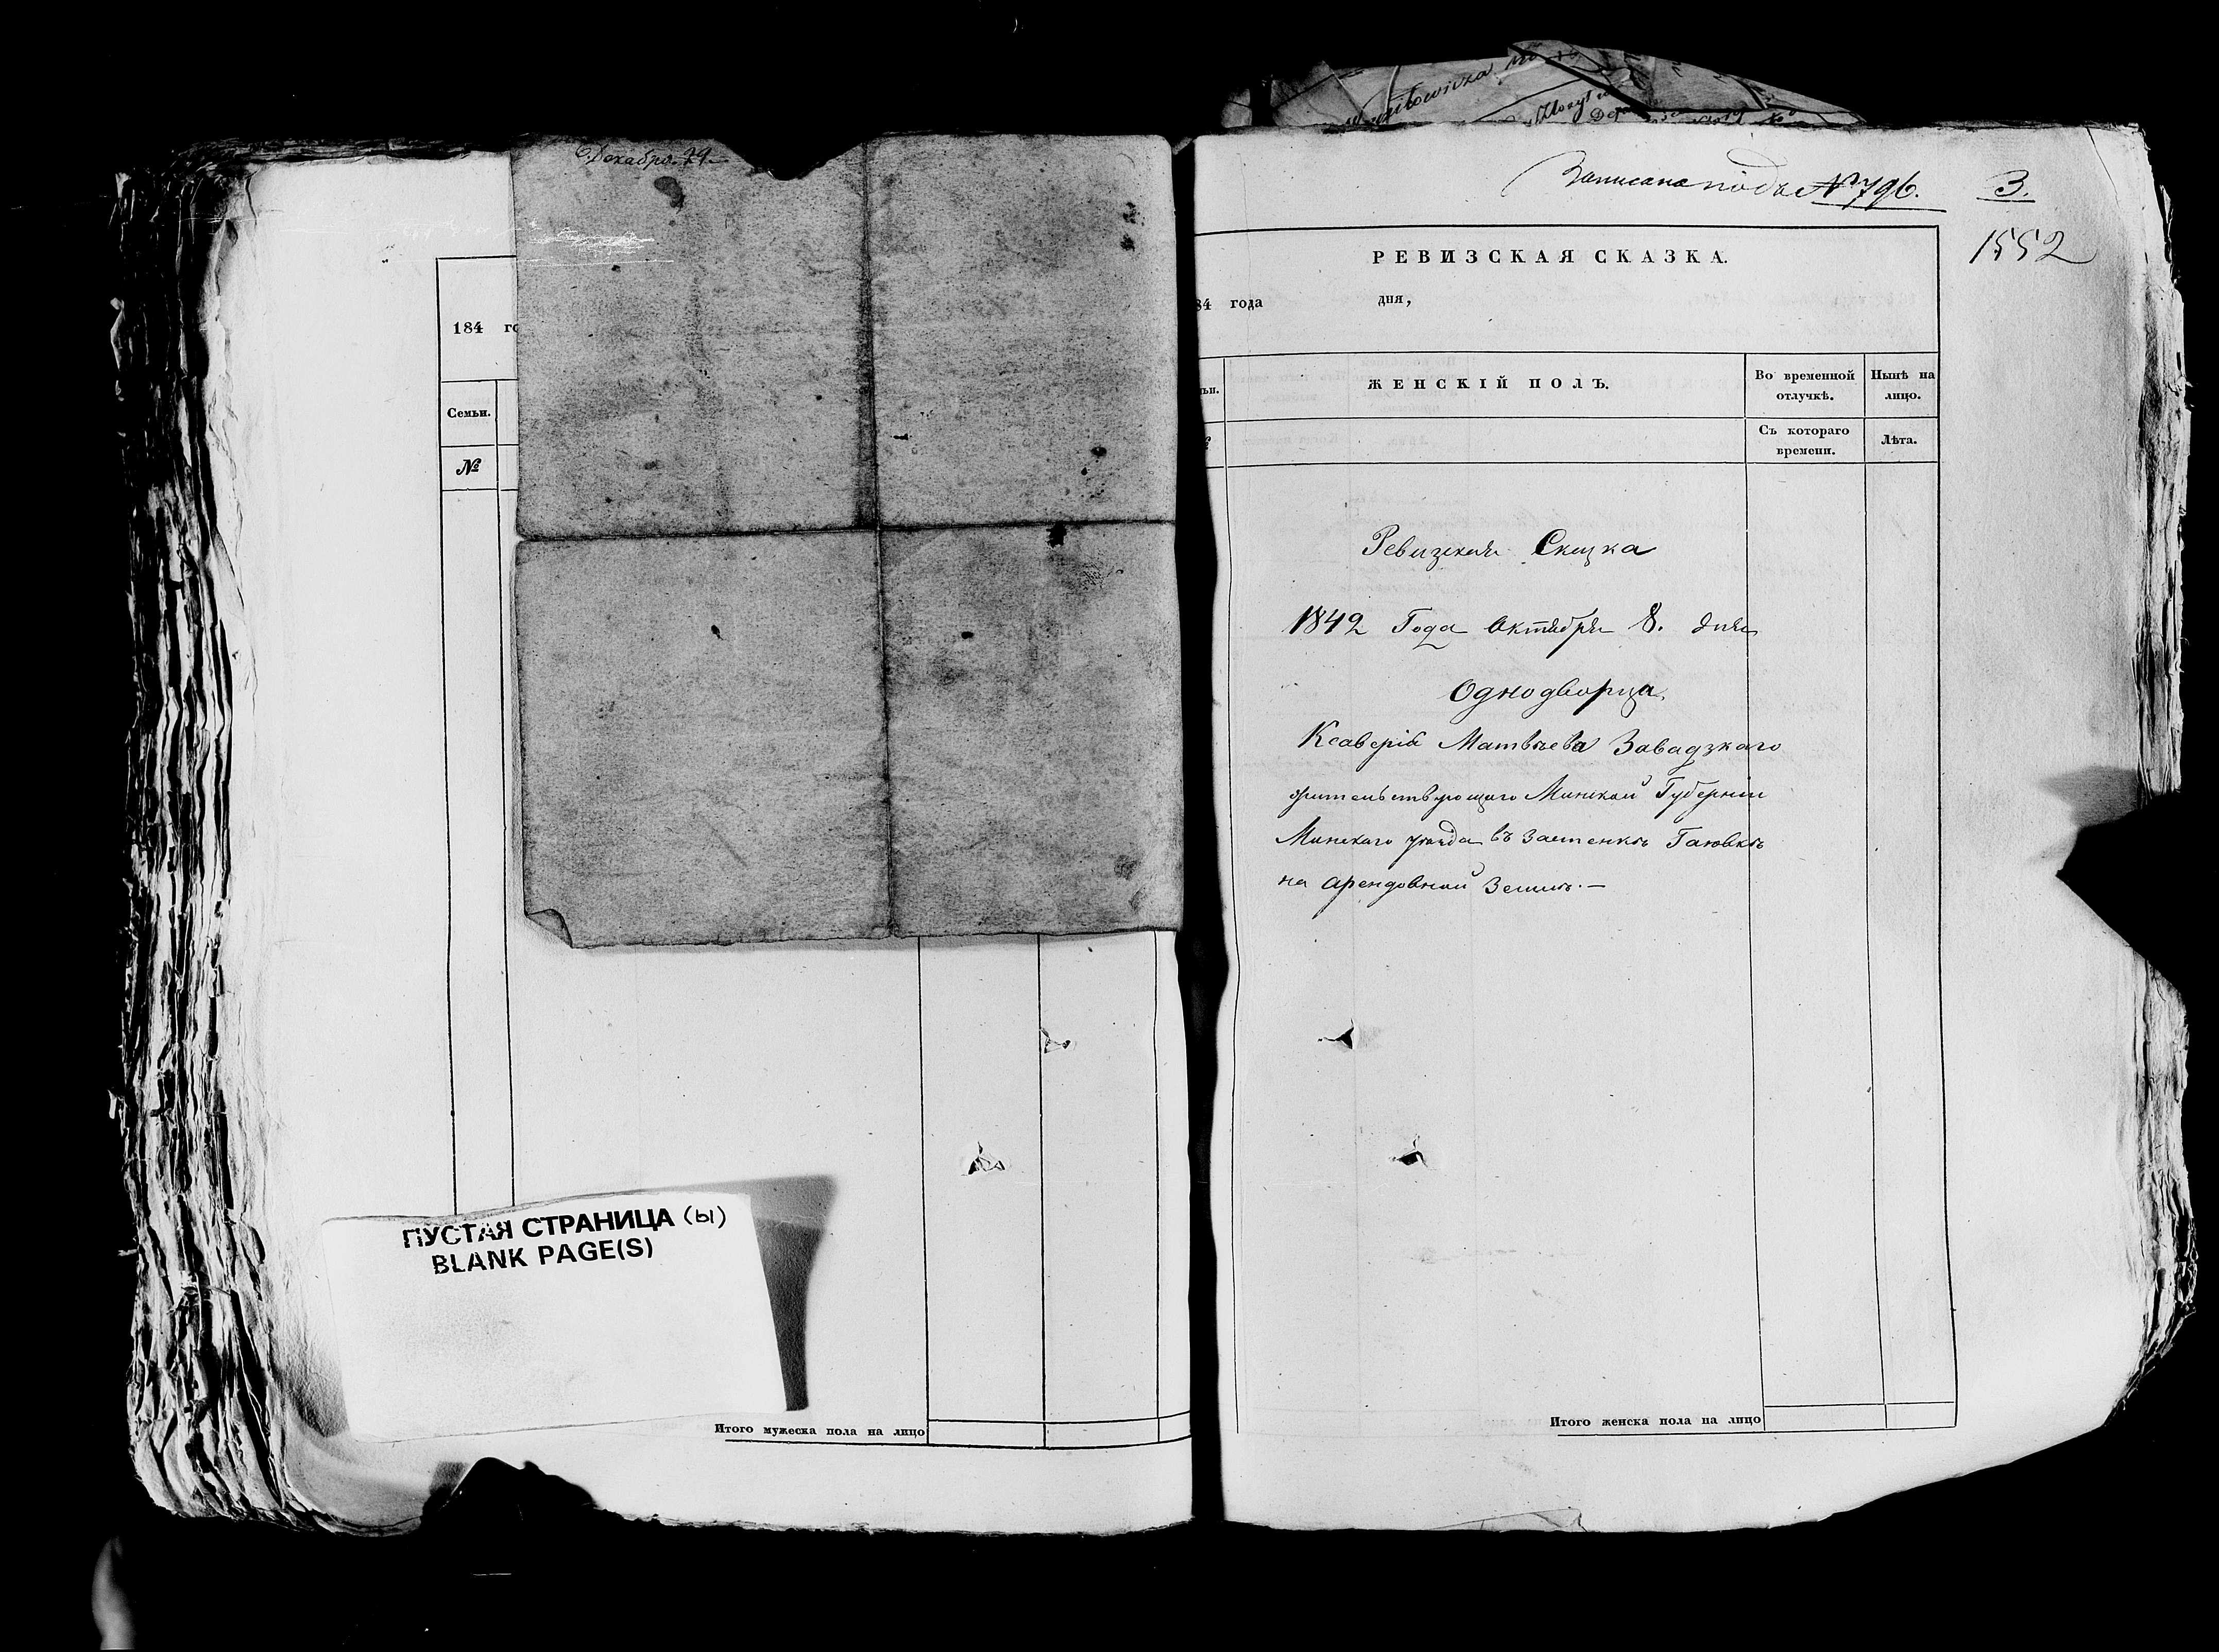 Декабря 21
184 го
Семьи.
№
ПУСТАЯ СТРАНИЦА (ы)
BLANK PAGE(S)
Итого мужеска пола на лицо
Записана подъ № 796. 3.
1552
РЕВИЗСКАЯ СКАЗКА.
84 года дня,
ЖЕНСКІЙ ПОЛЪ.
Во временной отлучкѣ.
Нынѣ на лицо.
Съ котораго времени.
Лѣта.
Ревизская Сказка
1842 Года Октября 8. дня
Однодворца
Ксаверія Матвѣева Завадзкаго
жительствующаго Минской Губерніи
Минскаго уѣзда въ Застенкѣ Гаювкѣ
на арендовной Землѣ. —
Итого женска пола на лицо